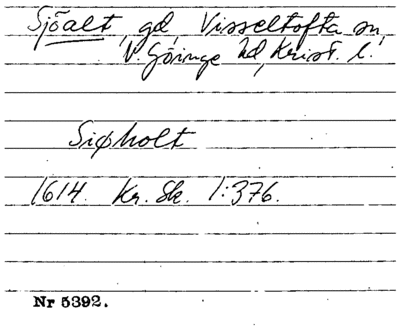 Sjöalt, gd, Visseltofta sn,
V. Göinge hd, Krist. l.
Siøholt
1614. Kr. Sk. 1:376.
Nr 5392.